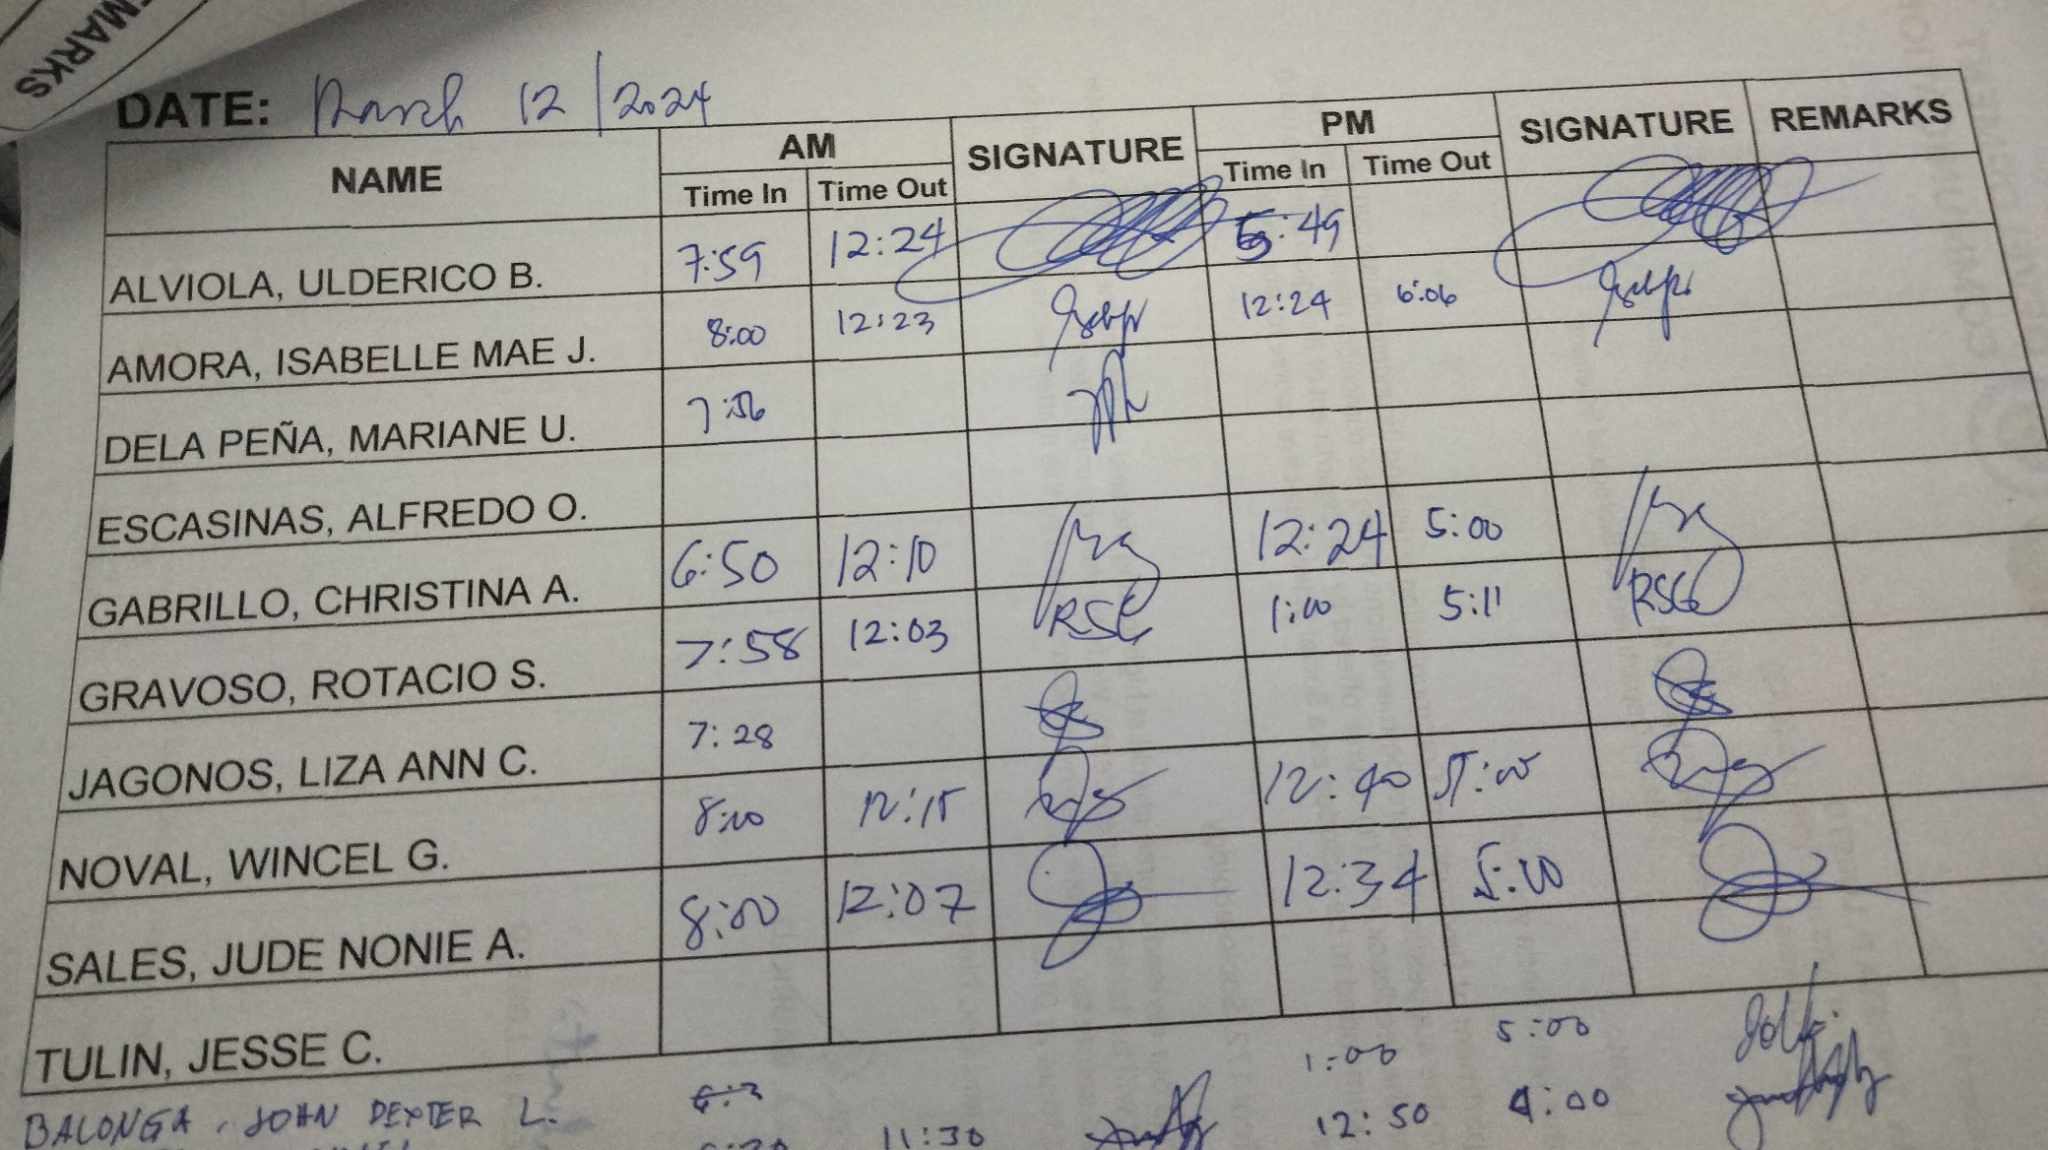 MARKS
DATE: March 12/2024
NAME AM SIGNATURE PM SIGNATURE REMARKS
Time In Time Out Time In Time Out
ALVIOLA, ULDERICO B. 7:59 12:24 :49
AMORA, ISABELLE MAE J. 8:00 12:23 12:24 6:06
DELA PEÑA, MARIANE U. 7:56
ESCASINAS, ALFREDO O.
GABRILLO, CHRISTINA A. 6:50 12:10 12:24 5:00
GRAVOSO, ROTACIO S. 7:58 12:03 RSG 1:00 5:11 RSG
JAGONOS, LIZA ANN C. 7:28
NOVAL, WINCEL G. 8:00 12:15 12:40 5:00
SALES, JUDE NONIE A. 8:00 12:07 12:34 5:00
TULIN, JESSE C.
BALONGA, JOHN DEXTER L. 1:00 5:00
11:30 12:50 4:00